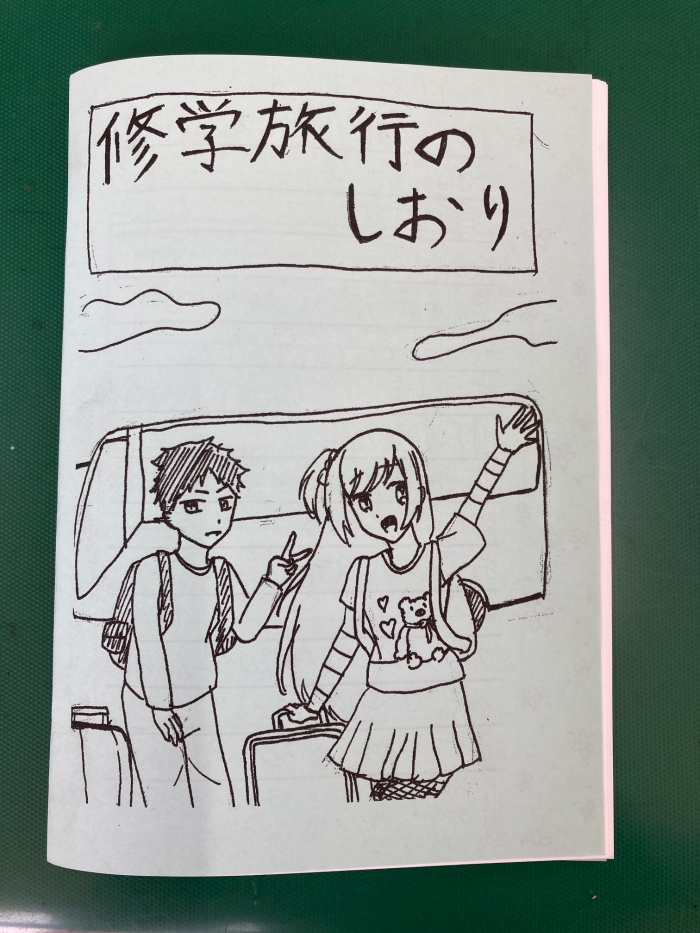 修学旅行の
しおり